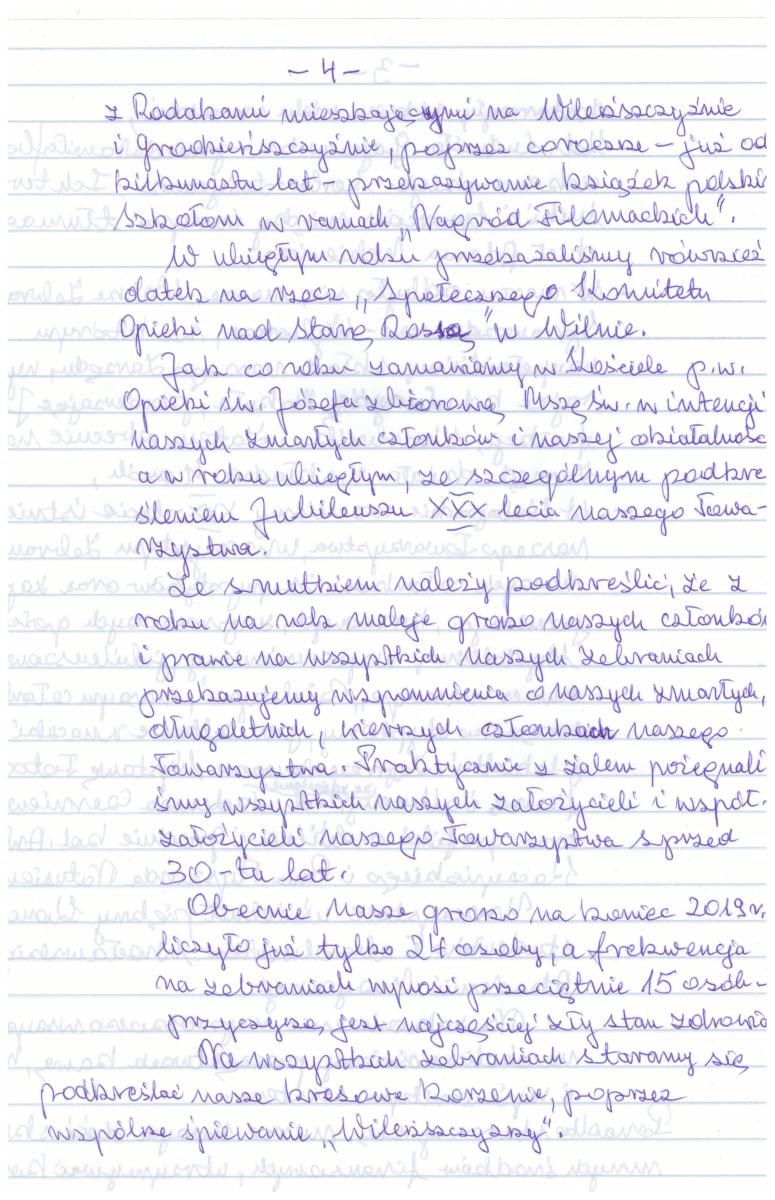 - 4 -
z Rodakami mieszkającymi na Wileńszczyźnie
i Grodzieńszczyźnie, poprzez coroczne - już od
kilkunastu lat - przekazywanie książek polski
szkołom w ramach „Nagród Filomackich".
W ubiegłym roku przekazaliśmy również
datek na rzecz „Społecznego Komitetu
Opieki nad Starą Rossą" w Wilnie.
Jak co roku zamawiamy w Kościele p.w.
Opieki św. Józefa zbiorową Mszę św. w intencji
naszych zmarłych członków i naszej działalnośc
a w roku ubiegłym, ze szczególnym podkre
śleniem Jubileuszu XXX lecia naszego Towa-
rzystwa.
Ze smutkiem należy podkreślić, że z
roku na rok maleje grono naszych członków
i prawie na wszystkich naszych zebraniach
przekazujemy wspomnienia o naszych zmarłych,
długoletnich, wiernych członkach naszego
Towarzystwa. Praktycznie z żalem pożegnali
śmy wszystkich naszych założycieli i współ.
założycieli naszego Towarzystwa sprzed
30-tu lat.
Obecnie nasze grono na koniec 2019 r.
liczyło już tylko 24 osoby, a frekwencja
na zebraniach wynosi przeciętnie 15 osób -
przyczyną jest najczęściej zły stan zdrowia
Na wszystkich zebraniach staramy się
podkreślać nasze kresowe korzenie, poprzez
wspólne śpiewanie „Wileńszczyzny".